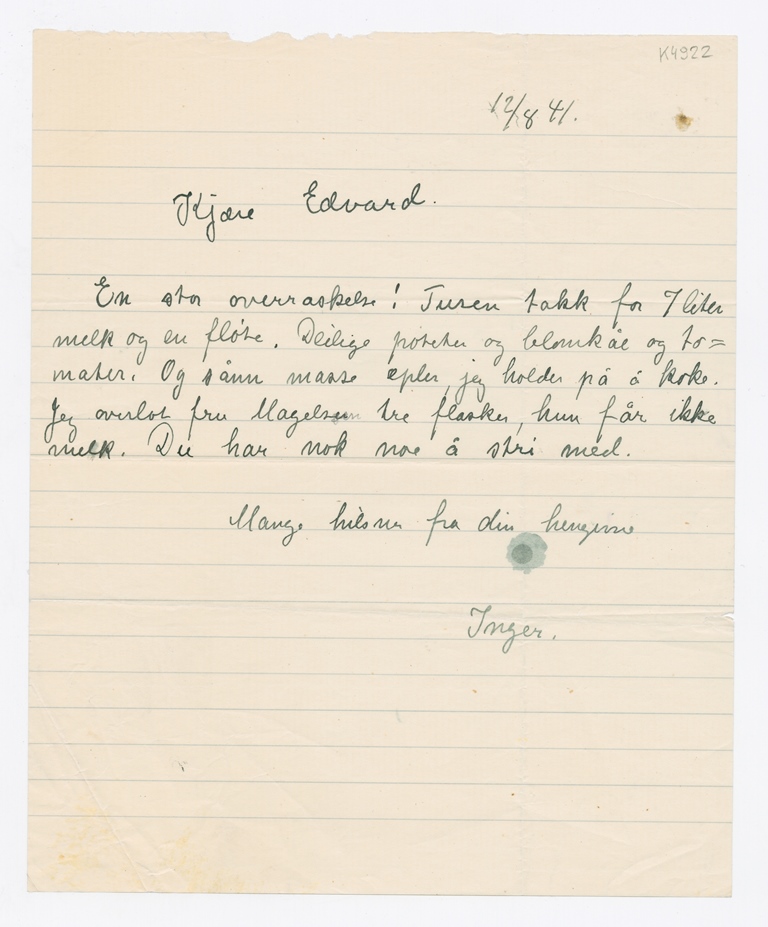 K4922
12/8 41.
Kjære Edvard.
En stor overraskelse! Tusen takk for 7 liter
melk og en fløte. Deilige poteter og blomkål og to=
mater. Og sånn masse epler, jeg holder på å koke.
Jeg overlot fru Magelsen tre flasker, hun får ikke
melk. Du har nok noe å stri med.
Mange hilsner fra din hengivne
Inger.